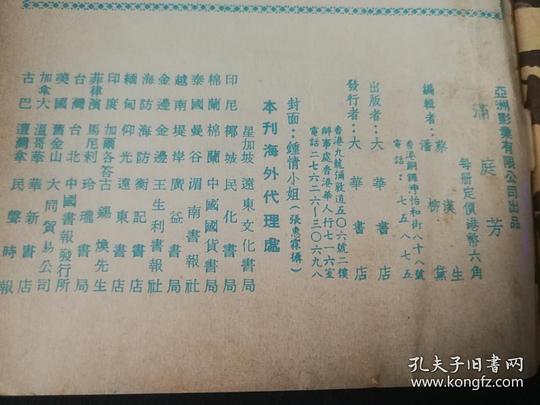 亞洲影業有限公司出品
滿庭芳
每冊定價港幣六角
編輯者：蔡漢生
潘柳黛
香港銅鑼灣怡和街八十八號
電話：七五八七五
出版者：大華書店
發行者：大華書店
香港九龍彌敦道五〇六號二樓
辦事處香港華人行七一六室
電話二七六二六・三〇六九八
封面：鍾情小姐（張惠霖攝）
本刊海外代理處
星加坡遠東文化書局
印尼椰城民化書局
棉蘭棉蘭中國國貨書局
泰國曼谷湄南書報社
越南堤岸廣益書局
金邊金邊王生利書報社
海防海防衡記書局
緬甸仰光遠東書店
印度加爾各答古錫煥先生
菲律濱馬尼剌玲瓏書局
台灣台北中國書報發行所
美國舊金山大同貿易公司
加拿大溫哥華華新書店
古巴灣拿民聲時報
孔夫子旧书网
www.kongfz.com